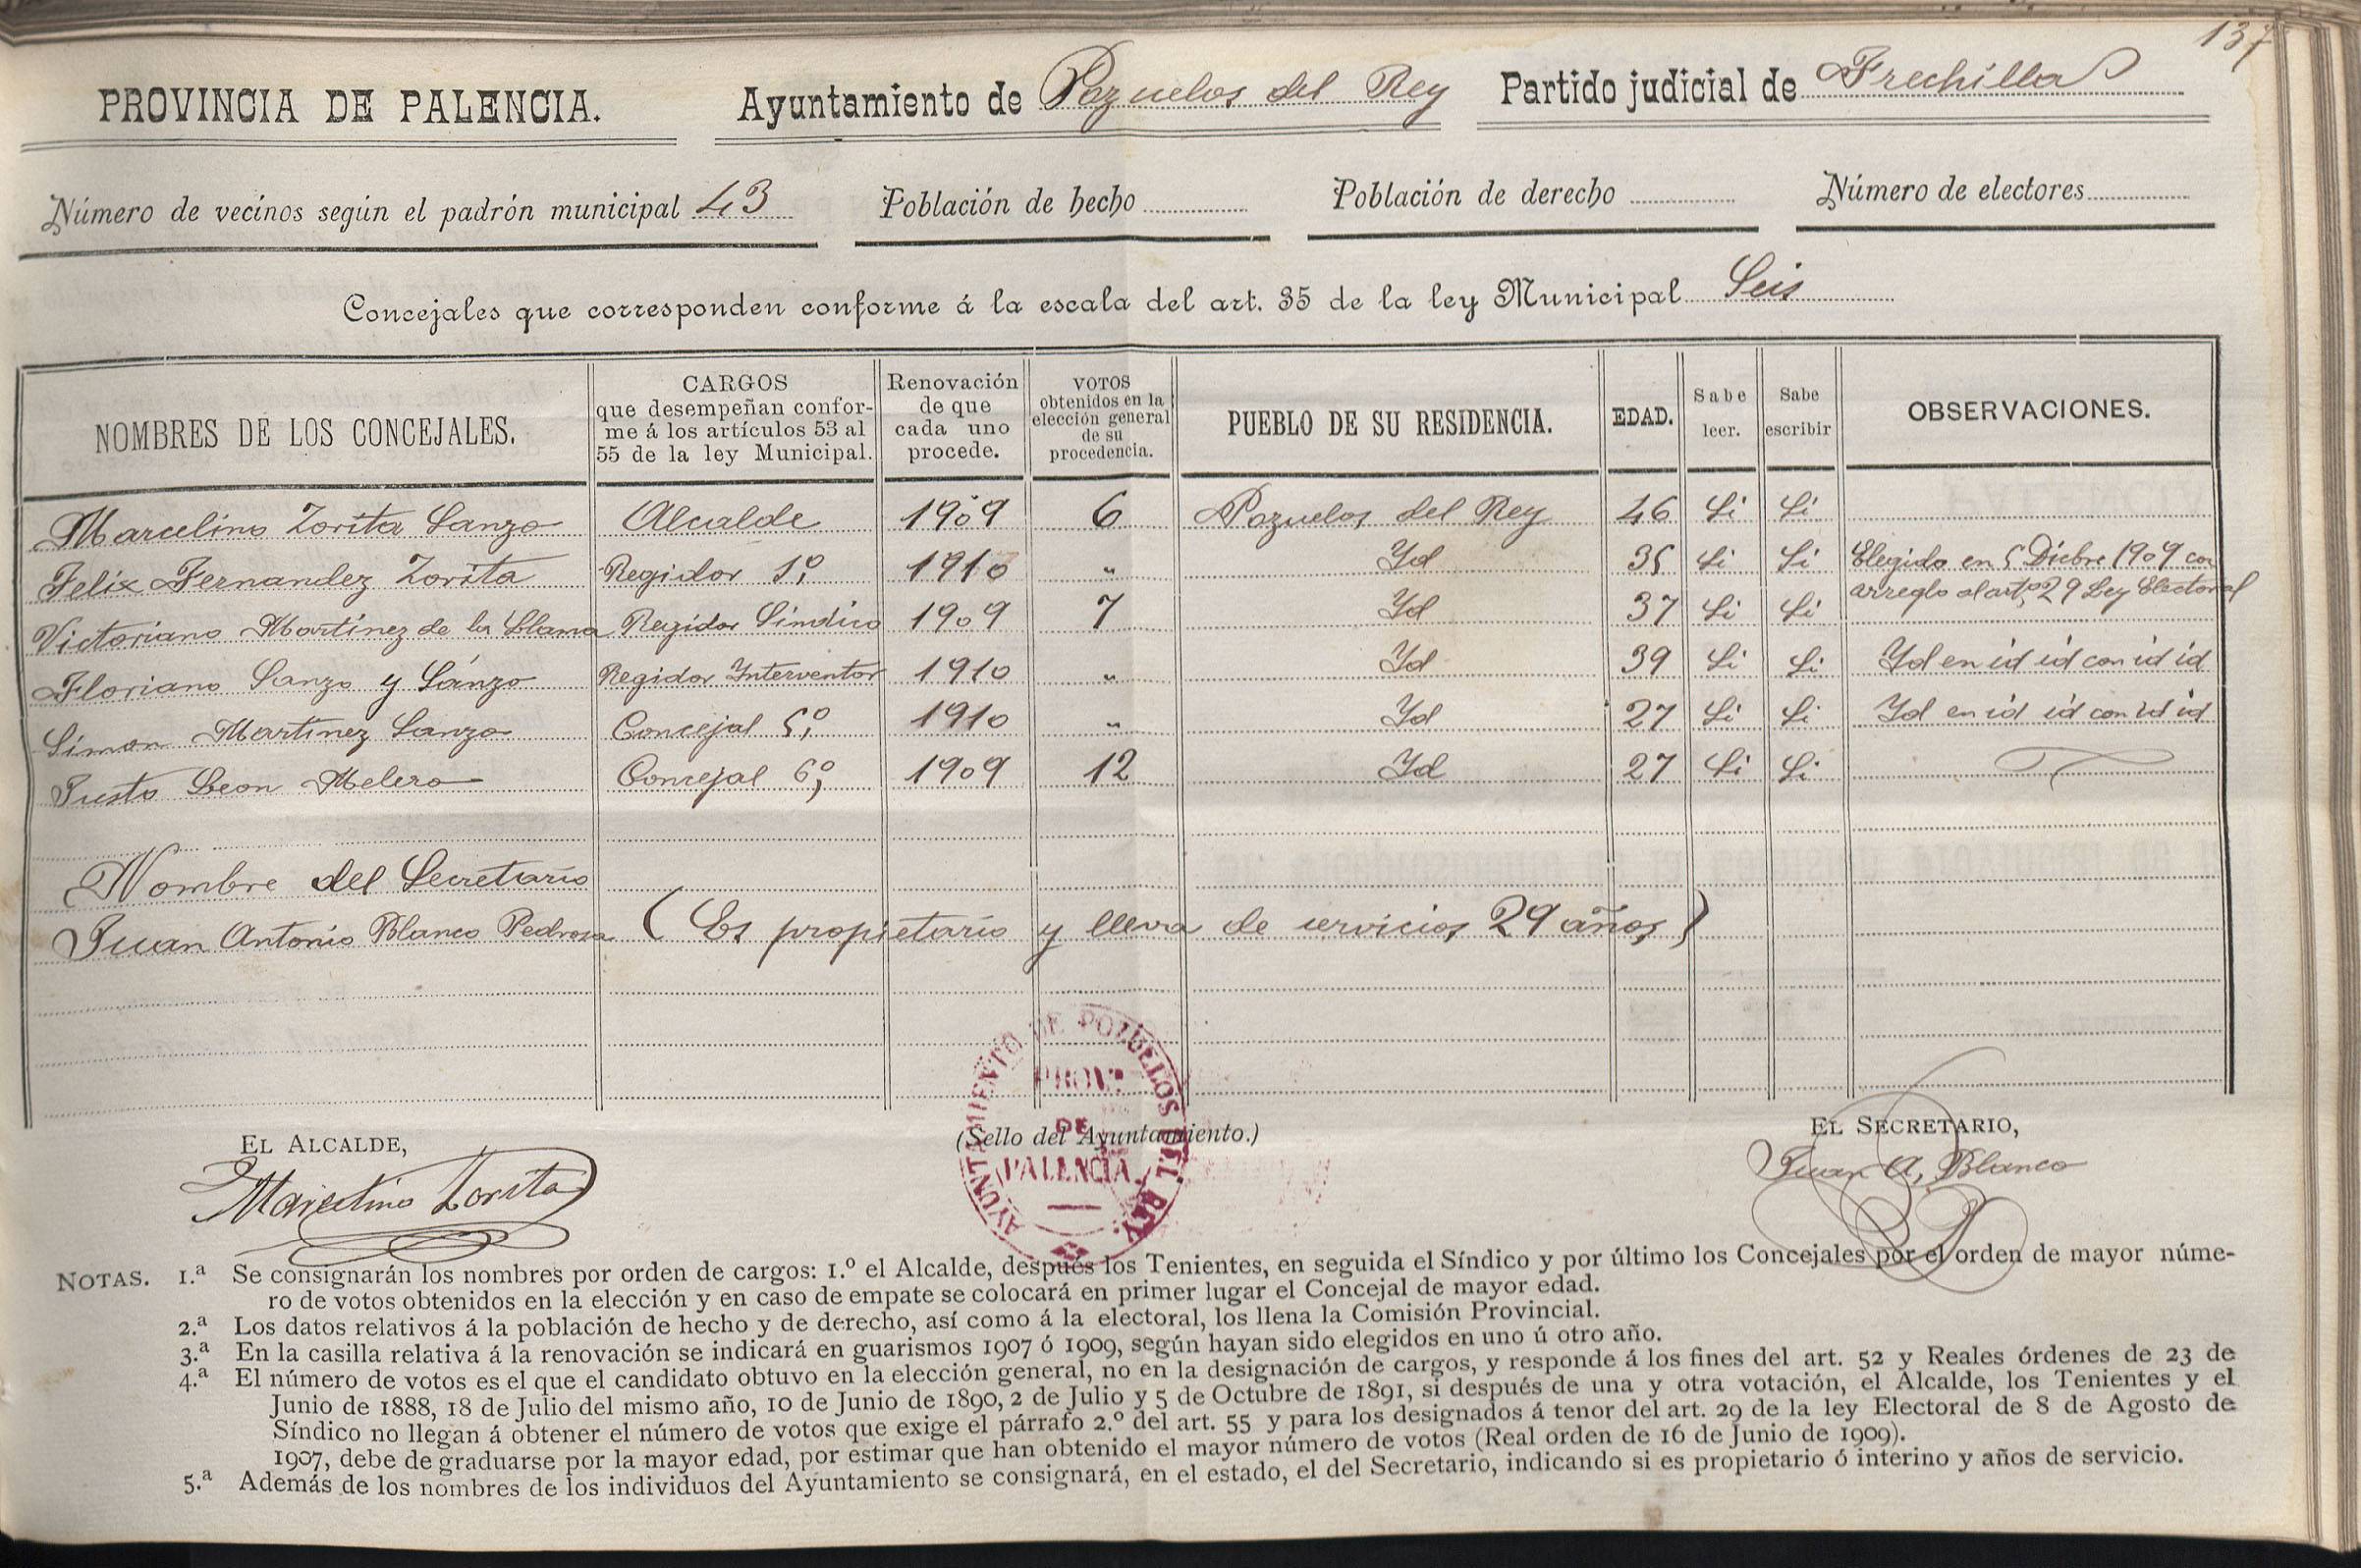 137
PROVINCIA DE PALENCIA. Ayuntamiento de Pozuelos del Rey Partido judicial de Frechilla
Número de vecinos según el padrón municipal 43 Población de hecho Población de derecho Número de electores
Concejales que corresponden conforme á la escala del art. 35 de la ley Municipal Seis
NOMBRES DE LOS CONCEJALES.
CARGOS
que desempeñan confor-
me á los artículos 53 al
55 de la ley Municipal.
Renovación
de que
cada uno
procede.
VOTOS
obtenidos en la
elección general
de su
procedencia.
PUEBLO DE SU RESIDENCIA.
EDAD.
Sabe
leer.
Sabe
escribir
OBSERVACIONES.
Marcelino Zorita Sanzo Alcalde 1909 6 Pozuelos del Rey 46 Si Si
Felix Fernandez Zorita Regidor 1º, 1910 " Yd 35 Si Si Elegido en 5 Diebre 1909 con
arreglo al artº 29 Ley Electoral
Victoriano Martinez de la Llama Regidor Sindico 1909 7 Yd 37 Si Si
Floriano Sanzo y Sánzo Regidor Interventor 1910 " Yd 39 Si Si Yd en id id con id id
Simon Martinez Sanzo Concejal 5º, 1910 " Yd 27 Si Si Yd en id id con id id
Justo Leon Melero Concejal 6º, 1909 12 Yd 27 Si Si
Nombre del Secretario
Juan Antonio Blanco Pedrosa (Es propietario y lleva de servicios 29 años)
AYUNTAMIENTO DE POZUELOS DEL REY.
PROVª
DE
PALENCIA
EL ALCALDE, (Sello del Ayuntamiento.) EL SECRETARIO,
Marcelino Zorita Juan A, Blanco
NOTAS. 1.ª Se consignarán los nombres por orden de cargos: 1.º el Alcalde, después los Tenientes, en seguida el Síndico y por último los Concejales por el orden de mayor núme-
ro de votos obtenidos en la elección y en caso de empate se colocará en primer lugar el Concejal de mayor edad.
2.ª Los datos relativos á la población de hecho y de derecho, así como á la electoral, los llena la Comisión Provincial.
3.ª En la casilla relativa á la renovación se indicará en guarismos 1907 ó 1909, según hayan sido elegidos en uno ú otro año.
4.ª El número de votos es el que el candidato obtuvo en la elección general, no en la designación de cargos, y responde á los fines del art. 52 y Reales órdenes de 23 de
Junio de 1888, 18 de Julio del mismo año, 10 de Junio de 1890, 2 de Julio y 5 de Octubre de 1891, si después de una y otra votación, el Alcalde, los Tenientes y el
Síndico no llegan á obtener el número de votos que exige el párrafo 2.º del art. 55 y para los designados á tenor del art. 29 de la ley Electoral de 8 de Agosto de
1907, debe de graduarse por la mayor edad, por estimar que han obtenido el mayor número de votos (Real orden de 16 de Junio de 1909).
5.ª Además de los nombres de los individuos del Ayuntamiento se consignará, en el estado, el del Secretario, indicando si es propietario ó interino y años de servicio.